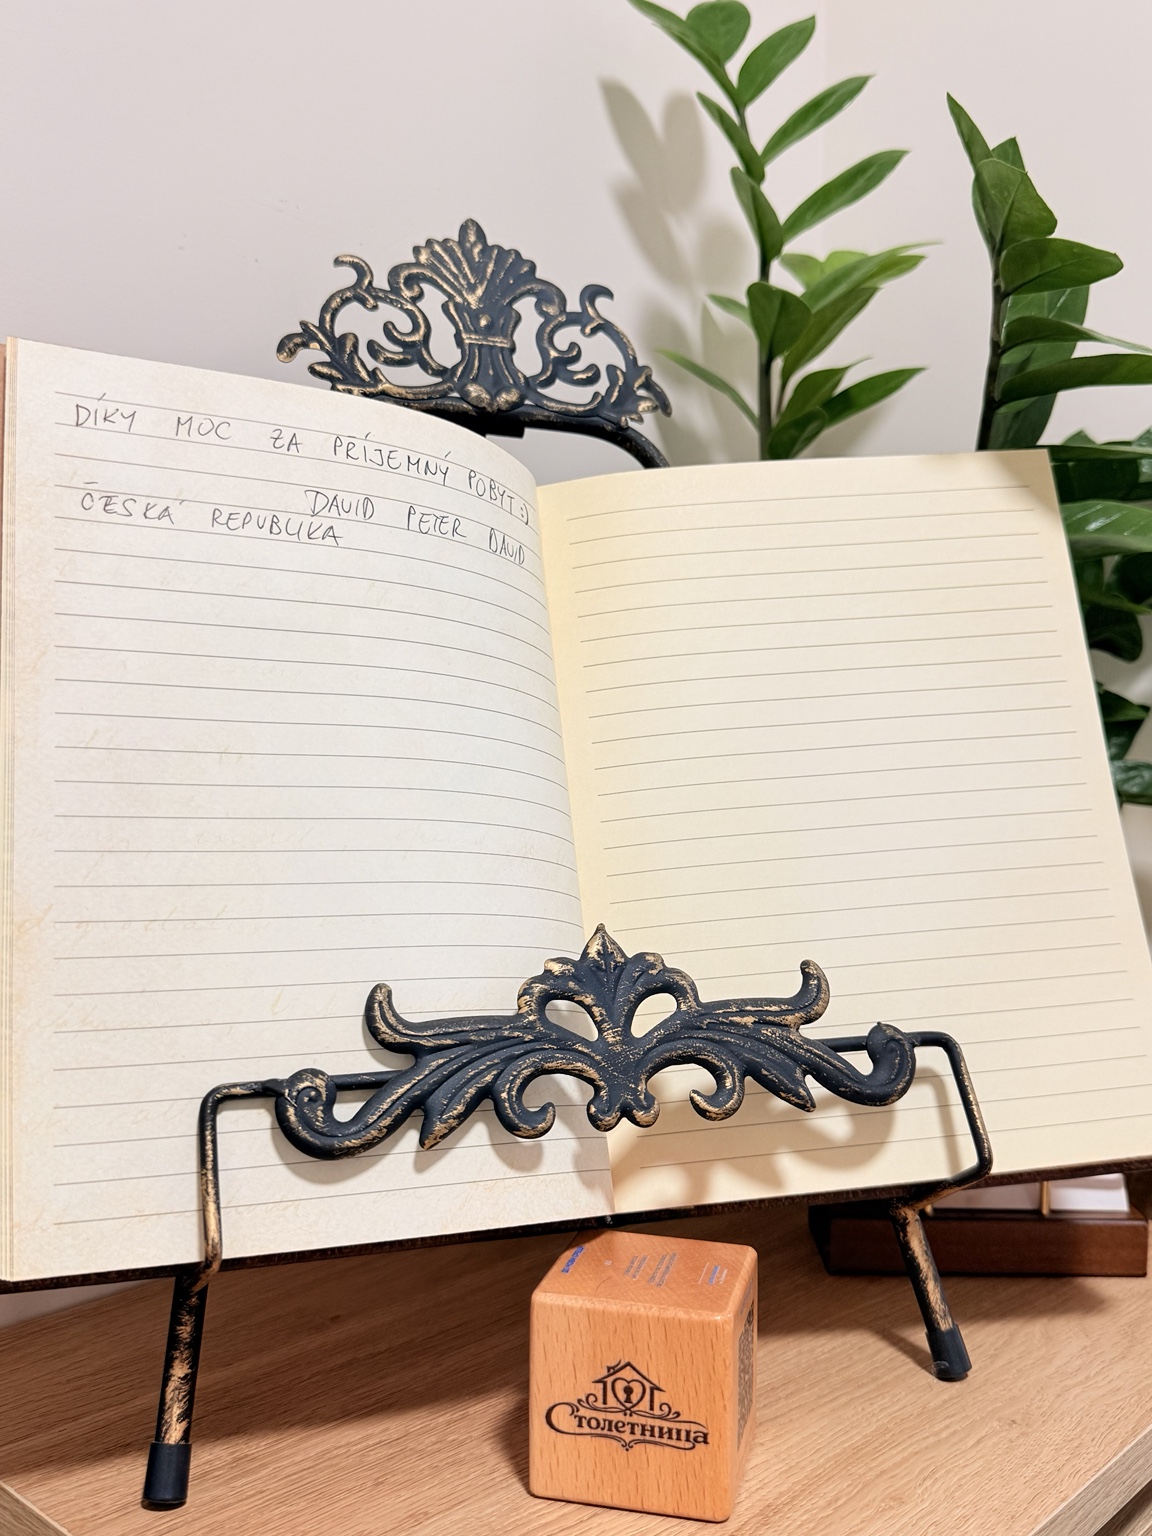 DÍKY MOC ZA PRÍJEMNÝ POBYT :)
DAVID PETER DAVID
ČESKÁ REPUBLIKA
Столетница